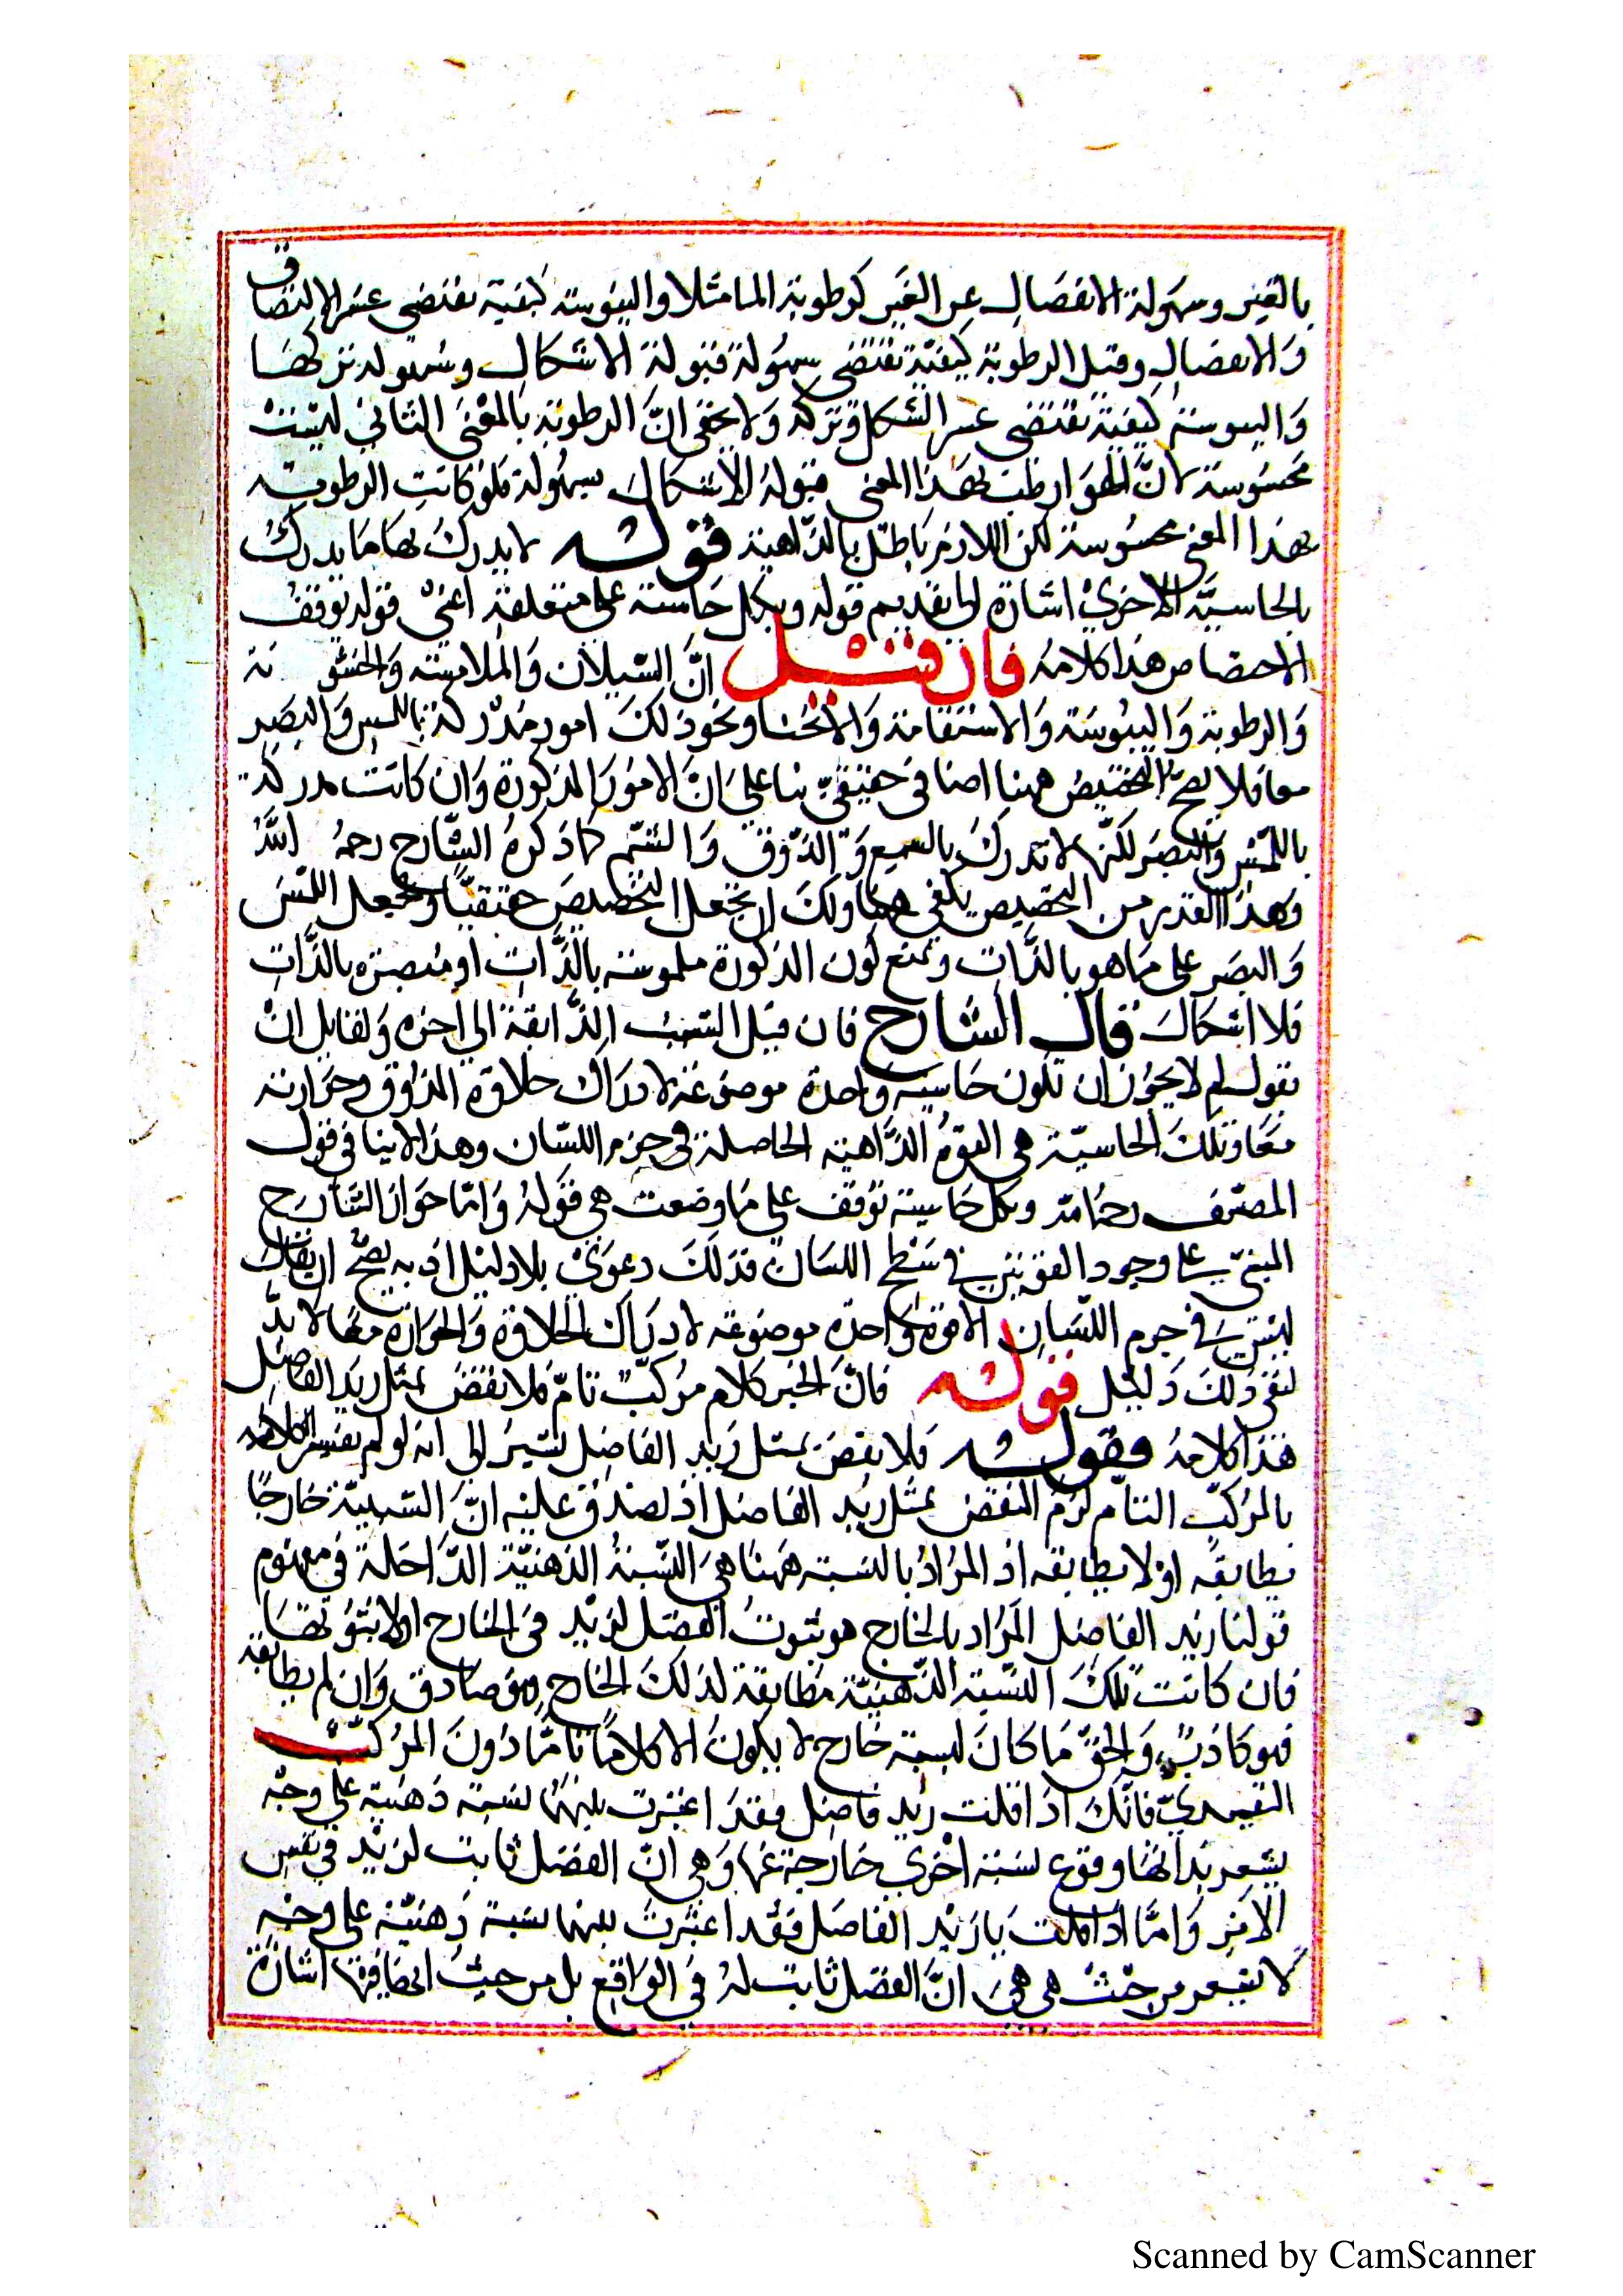 بالغير وسهولة الانفصال عن الغير كرطوبة الما مثلا واليبوسة كيفية تقتضي عسر الالتصاق
والانفصال وقيل الرطوبة كيفية تقتضي سهولة قبولة الاشكال وسهولة تركها
واليبوسة كيفية تقتضي عسر الشكل وتركه ولا يخفى انّ الرطوبة بالمعنى الثاني ليست
محسوسة لانّ الهوا رطب بهذا المعنى قبوله الاشكال بسهولة فلو كانت الرطوبة
بهذا المعنى محسوسة لكن اللازم باطل بالداهية قوله لا يدرك بها ما يدرك
بالحاسيّة الاخرى اشارة الى تقديم قوله وبكل حاسة على متعلقة اعنى قوله توقف
الاختصاص هذا كلامه فان قيل انّ السيلان والملاسة والخشونة
والرطوبة واليبوسة والاستقامة والانحنا ونحو ذلك امور مدركة باللمس والبصر
معا فلا يصح التخصيص ههنا اضافى حقيقيّ بنا على انّ الامور المذكورة وان كانت مدركة
باللمس والبصر لكنّها لا تدرك بالسمع والذوق والشم كما ذكره الشارح رحمه اللّه
وهذا القدر من التخصيص يكفى ههنا ولك ان تجعل التخصيص حقيقيّا وتجعل اللمس
والبصر على ما هو بالذّات وتمنع كون الذكورة ملموسة بالذّات او مبصرة بالذّات
فلا اشكال قال الشارح فان قيل اليست الذّايقة الى اخره ولقايل ان
يقول لم لا يجوز ان تكون حاسية واحدة موضوعة لادراك حلاوة المذوق وحرارته
معا وتلك الحاسيّة هى القوة الذّاهية الحاصلة فى جرم اللسان وهذا لا ينافى قول
المصنف رحمه الله وبكل حاسية توقف على ما وضعت هى قوله وامّا جواز الشارح
المبنى على وجود القوتين في سطح اللسان فذلك دعوى بلا دليل اذ به يصحّ ان يقال
ليس في جرم اللسان الا قوة واحدة موضوعة لادراك الحلاوة والحرارة معا لا بدّ
لنفى ذلك دليل قوله فانّ الخبر كلام مركبّ تامّ فلا نقض بمثل زيد الفاضل
هذا كلامه فقوله فلا نقض بمثل زيد الفاضل يشير الى انه لو لم يفسر الكلام
بالمركبّ التام لزم النقض بمثل زيد الفاضل اذ يصدق عليه انّ النسبيّة خارجًا
يطابقه او لا يطابقه اذ المراد بالنسبة ههنا هى النّسبة الذهنيّة الدّاخلة في مفهوم
قولنا زيد الفاضل المراد بالخارج هو ثبوت الفضل لزيد فى الخارج او لا ثبوتها
فان كانت تلك النسبة الذّهنيّة مطابقة لذلك الخارج فهو صادق وان لم يطابقه
فهو كاذب والحقّ ما كان لنسبته خارج لا يكون الا كلاما تامّا دون المركّب
التقييديّ فانّك اذا قلت زيد فاضل فقد اعتبرت بينهما نسبة ذهنية على وجه
يشعر بذاتها وقوع نسبة اخرى خارجة عنها وهى انّ الفضل ثابت لزيد في نفس
الامر وامّا اذا قلت يا زيد الفاضل فقد اعتبرت بينهما نسبة ذهنيّة على وجه
لا تشعر من حيث هى هى انّ الفضل ثابت له في الواقع بل من حيث انّ فيها اشارة
Scanned by CamScanner